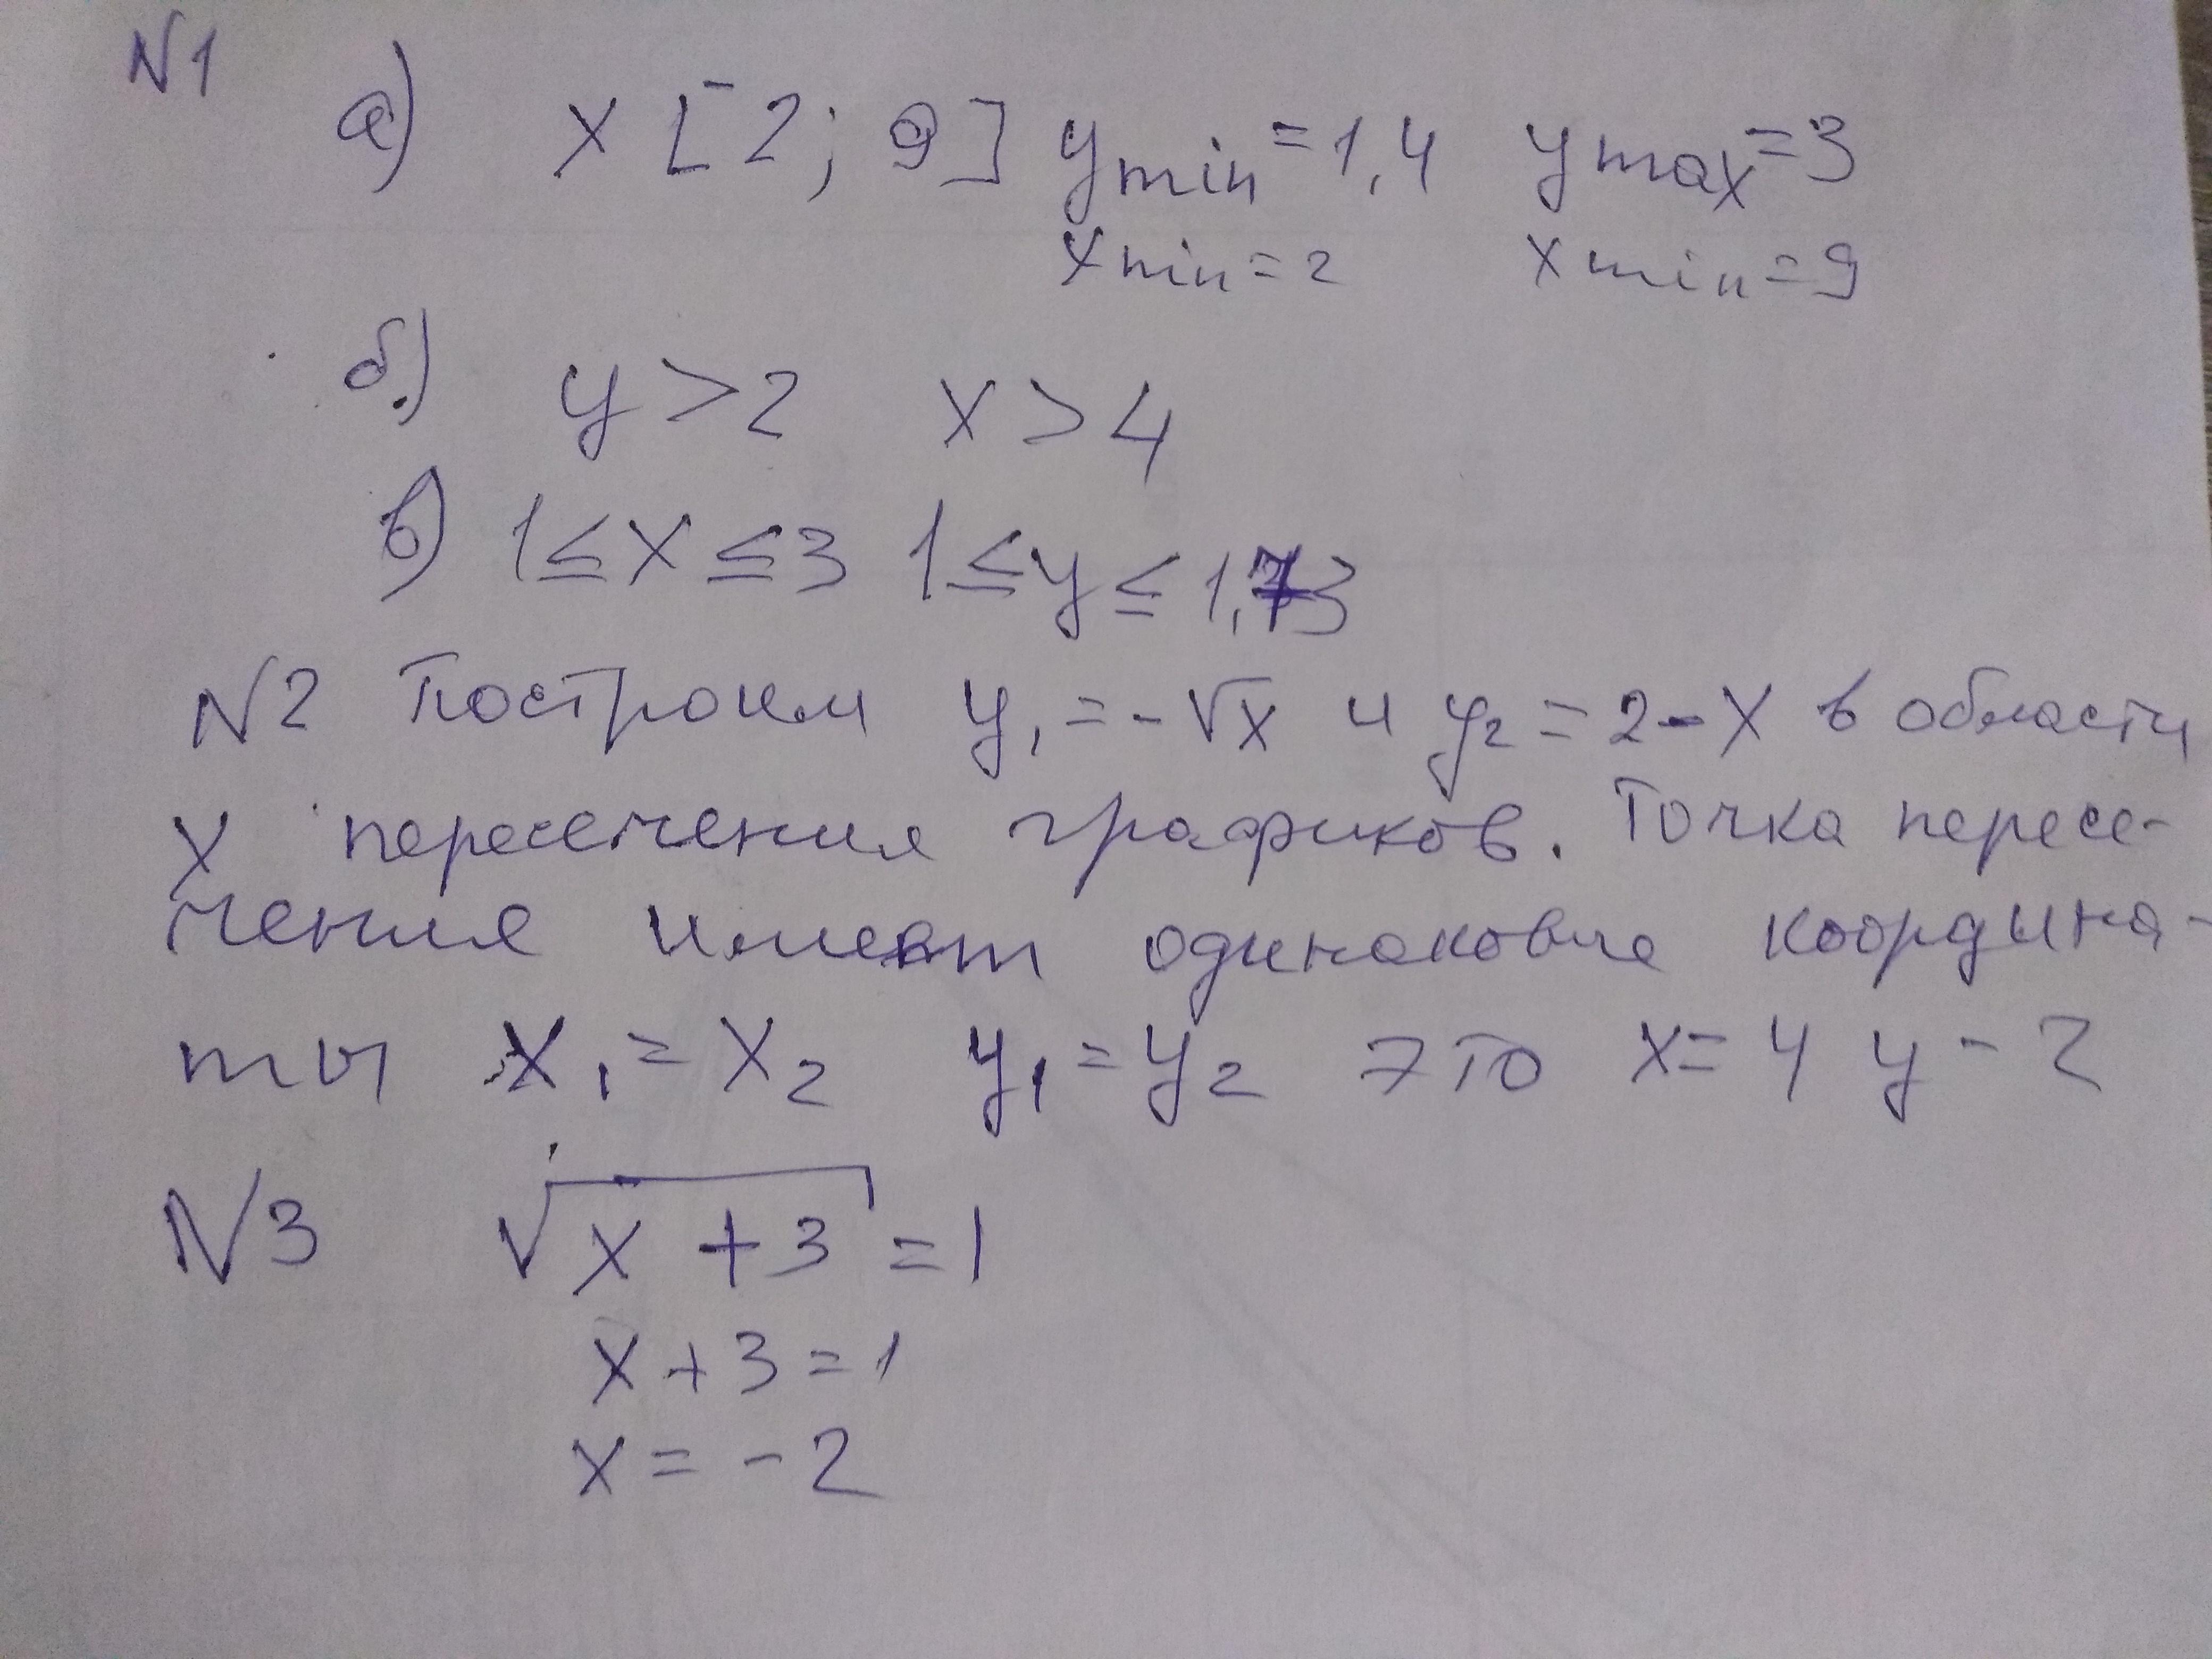 N1
а) x [2; 9] y min = 1,4 y max = 3
x min = 2 x min = 9
б) y > 2 x > 4
в) 1 ≤ x ≤ 3 1 ≤ y ≤ 1,73
N2 Построим y₁ = -√x и y₂ = 2 - x в области
x пересечения графиков. Точка пересе-
чения имеет одинаковые координа-
ты x₁ = x₂ y₁ = y₂ это x = 4 y - 2
N3 √(x + 3) = 1
x + 3 = 1
x = -2